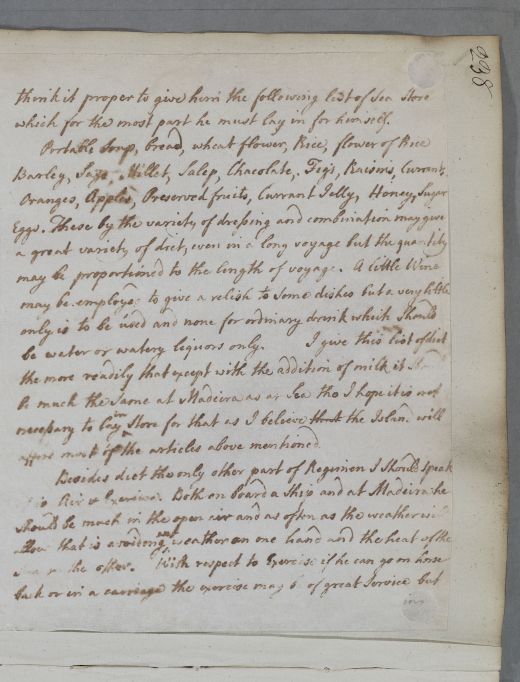 238
think it proper to give him the following list of Sea Store
which for the most part he must lay in for himself.
Portable Soup, bread, wheat flower, Rice, flower of Rice
Barley, Sago, Millet, Salep, Chacolate, Figs, Raisins, Currants,
Oranges, Apples, Preserved fruits, Currant Jelly, Honey, Sugar
Eggs. These by the variety of dressing and combination may give
a great variety of diet, even in a long voyage but the quantity
may be proportioned to the length of voyage. A little Wine
may be employed to give a relish to some dishes but a very little
only is to be used and none for ordinary drink which should
be water or watery liquors only. I give this list of diet
the more readily that except with the addition of milk it
be much the Same at Madeira as at Sea tho I hope it is not
necessary to lay in Store for that as I believe the Island will
most of the articles above mentioned
Besides diet the only other part of Regimen I should speak
is Air & Exercise. Both on board a Ship and at Madeira he
should be much in the open air and as often as the weather will
allow that is avoiding wet weather on one hand and the heat of the
the other. With respect to Exercise if he can go on horse
back or in a carriage the exercise may be of great Service but
in